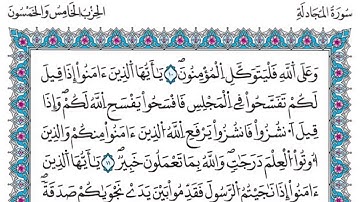 سُورَةُ المُجَادلَةِ
الحِزْبُ الخَامِسُ وَالخَمْسُونَ
وَعَلَى اللَّهِ فَلْيَتَوَكَّلِ الْمُؤْمِنُونَ ۝١٠ يَٰٓأَيُّهَا الَّذِينَ ءَامَنُوٓا۟ إِذَا قِيلَ
لَكُمْ تَفَسَّحُوا۟ فِى الْمَجْلِسِ فَافْسَحُوا۟ يَفْسَحِ اللَّهُ لَكُمْ ۖ وَإِذَا
قِيلَ اَنشُزُوا۟ فَانشُزُوا۟ يَرْفَعِ اللَّهُ الَّذِينَ ءَامَنُوا۟ مِنكُمْ وَالَّذِينَ
أُوتُوا۟ الْعِلْمَ دَرَجَٰتٍ ۖ وَاللَّهُ بِمَا تَعْمَلُونَ خَبِيرٌ ۖ ۝١١ يَٰٓأَيُّهَا الَّذِينَ
ءَامَنُوٓا۟ إِذَا نَٰجَيْتُمُ الرَّسُولَ فَقَدِّمُوا۟ بَيْنَ يَدَىْ نَجْوَىٰكُمْ صَدَقَةً ۖ